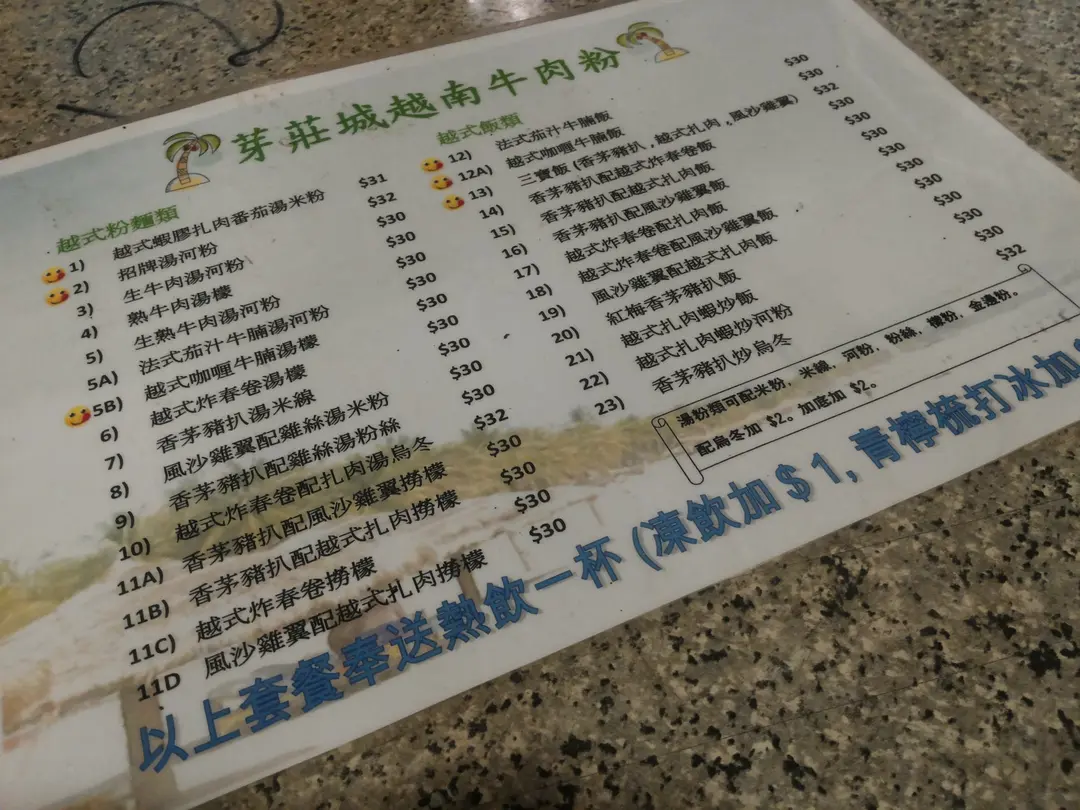 芽莊城越南牛肉粉
越式粉麵類
1) 越式蝦膠扎肉番茄湯米粉 $31
2) 招牌湯河粉 $32
3) 生牛肉湯河粉 $30
4) 熟牛肉湯檬 $30
5) 生熟牛肉湯河粉 $30
5A) 法式茄汁牛腩湯河粉 $30
5B) 越式咖喱牛腩湯檬 $30
6) 越式炸春卷湯檬 $30
7) 香茅豬扒湯米線 $30
8) 風沙雞翼配雞絲湯米粉 $30
9) 香茅豬扒配雞絲湯粉絲 $30
10) 越式炸春卷配扎肉湯烏冬 $32
11A) 香茅豬扒配風沙雞翼撈檬 $30
11B) 香茅豬扒配越式扎肉撈檬 $30
11C) 越式炸春卷撈檬 $30
11D 風沙雞翼配越式扎肉撈檬 $30
越式飯類
12) 法式茄汁牛腩飯 $30
12A) 越式咖喱牛腩飯 $30
13) 三寶飯(香茅豬扒,越式扎肉,風沙雞翼) $32
14) 香茅豬扒配越式炸春卷飯 $30
15) 香茅豬扒配越式扎肉飯 $30
16) 香茅豬扒配風沙雞翼飯 $30
17) 越式炸春卷配扎肉飯 $30
18) 越式炸春卷配風沙雞翼飯 $30
19) 風沙雞翼配越式扎肉飯 $30
20) 紅梅香茅豬扒飯 $30
21) 越式扎肉蝦炒飯 $30
22) 越式扎肉蝦炒河粉 $30
23) 香茅豬扒炒烏冬 $32
湯粉類可配米粉，米線，河粉，粉絲，檬粉，金邊粉。
配烏冬加 $2。加底加 $2。
以上套餐奉送熱飲一杯(凍飲加$1,青檸梳打冰加